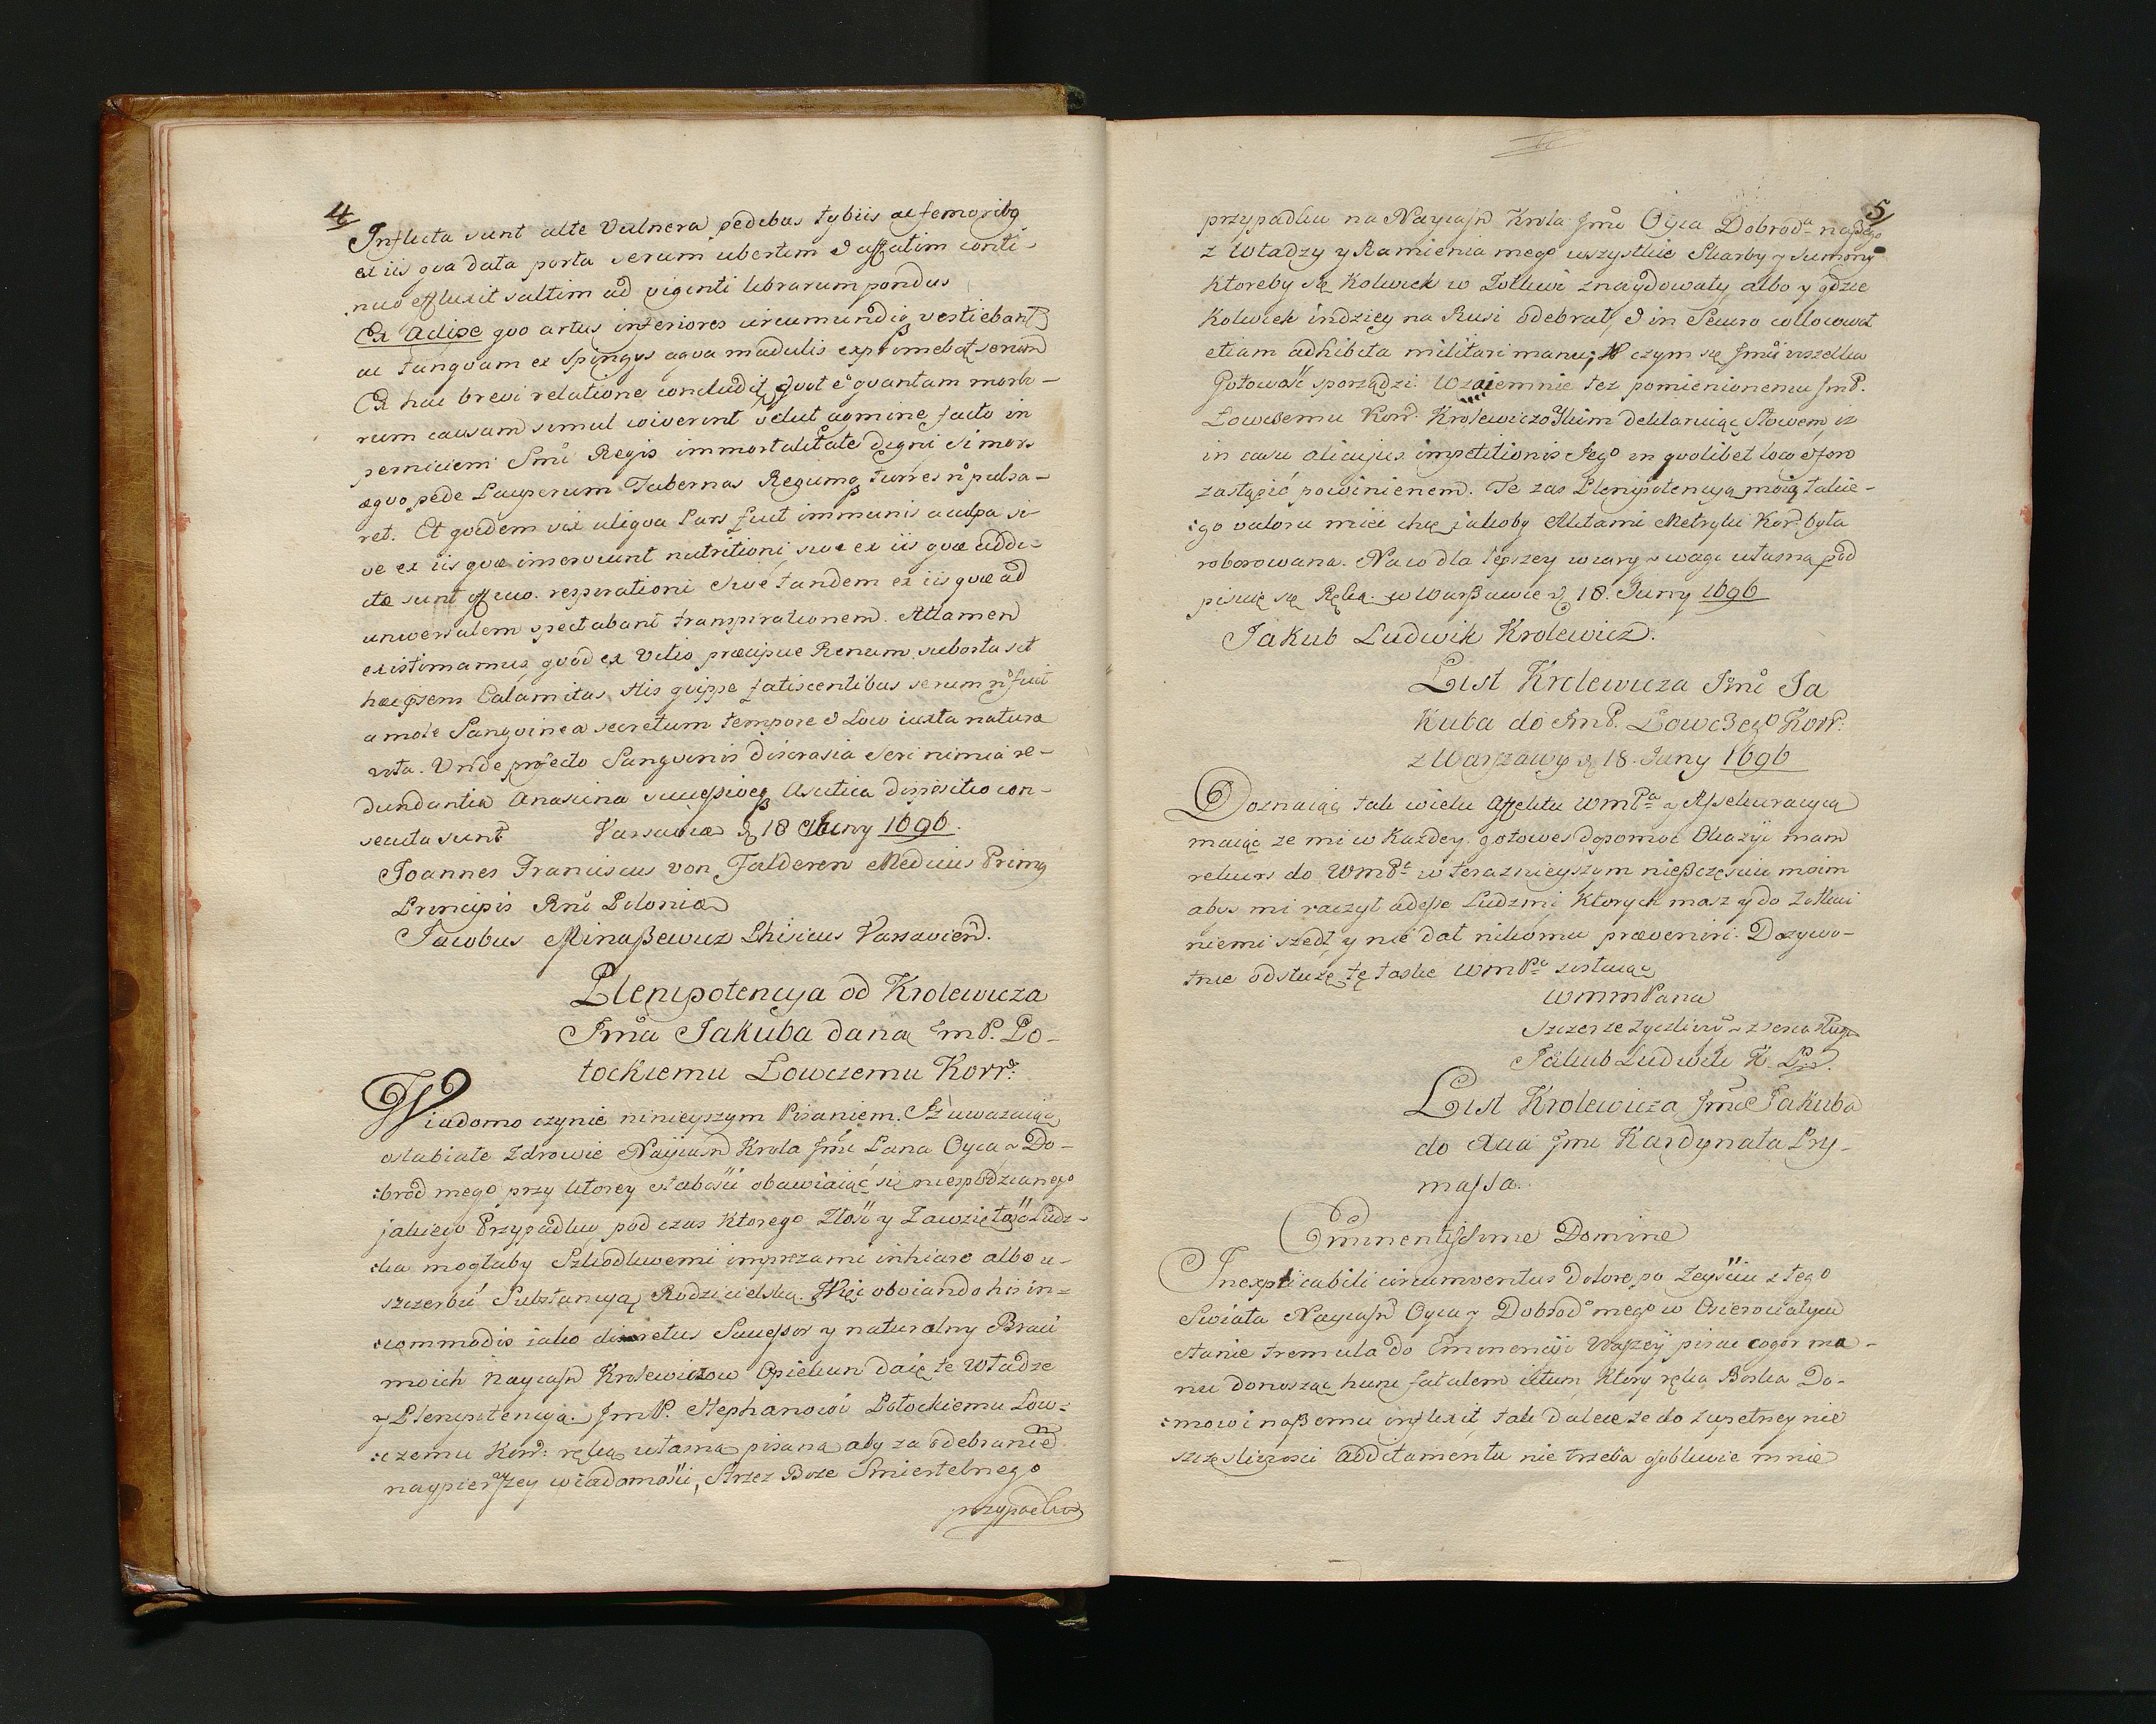 4
Inflicta sunt alte Vulnera pedibus tybiis ac femoribq
ex iis qva data porta serum ubertim & affatim conti-
nuo effluxit saltim ad viginti librarum pondus
Ex Adipe qvo artus inferiores circumundiq vestiebant
ac tanqvam ex spingys aqva madidis exprimebat serum
Ex hac brevi relatione concludit qvot & qvantam morbo-
rum causam simul coiverint velut agmine facto in
perniciem Smi Regis immortalitate digni si mors
æqvo pede Pauperum Tabernas Regumq turres n pulsa-
ret. Et qvidem vix aliqva Pars fuit immunis a culpa si-
ve ex iis qvæ inserviunt nutritioni, sive ex iis qvæ addi-
ctæ sunt respirationi sive tandem ex iis qvæ ad
universalem spectabant transpirationem. Attamen
existimamus qvod ex Vitio præcipue Renum suborta sit
hæc Calamitas. His qvippe fatiscentibus serum n fuit
a mole Sangvinea secretum tempore & Loco iuxta naturæ
vota. Unde profecto Sangvinis discrasia seri nimia re-
dundantia Anasarca succeßiveq Ascitica dispositio con-
secuta sunt Varsaviæ d 18 Juny 1696.
Joannes Franciscus von Falderen Medicus Primq
Principis Rni Poloniæ
Jacobus Minaßewicz Phisicus Varsavien.
Plenipotencya od Krolewicza
Jmci Jakuba dana JmP. Po-
tockiemu Łowczemu Korr:
Wiadomo czynie ninieyszym Pisaniem. Iż uwazaiąc
osłabiałe Zdrowie Nayiasn Krola Jmci Pana Oyca y Do-
:brod mego przy ktorey słabości obawiaiąc się niespodzianego
jakiego Przypadku, pod czas ktorego Złość y Zawziętość Ludz-
:ka mogłaby Szkodliwemi imprezami inhiare albo u-
szczerbić Substancyą Rodzicielską. Więc obviando his in-
:commodis iako discretus Succeßor y naturalny Braci
moich Nayiasn Krolewiczow Opiekun daię te Władze
y Plenipotencyą. JmP. Stephanowi Potockiemu Łow-
:czemu Korr: ręką własną pisaną aby za odebraniem
naypierwszey wiadomości, Strzez Boze Smiertelnego
przypadku
5
przypadku na Nayiasn Krola Jmci Oyca Dobroda naszego
z Władzy y Ramienia mego wszystkie Skarby y Summy
ktoreby się Kolwiek w Zołkwi znaydowały, albo y gdzie
Kolwiek indziey na Rusi odebrał, & in Securo collocował
etiam adhibita militari manu; W czym się Jmci wszelka
Gotowość sporządzi. Wzaiemnie tez pomienionemu JmP.
Łowczemu Korr. Krolewiczoskim deklaruiąc Słowem, iz
in casu alicujus impetitionis Jego in qvolibet loco & foro
zastąpić powinienem. Te zas Plenipotencyą moią takie-
:go valoru mieć chcę jakoby Aktami Metryki Kor. była
roborowana. Na co dla lepszey wiary y wagi własną pod
pisuię się Ręką. w Warßawie d 18. Juny 1696
Jakub Ludwik Krolewicz.
List Krolewicza Jmci Ja
Kuba do JmP. Łowczego Korr:
z Warszawy d 18. Juny 1696
Doznaiąc tak wielu affektu WmPa y Aßekuracyią
maiąc ze mi w Kazdey gotowes dopomoc Okazyi mam
rekurs do WmPa w teraznieyszym nießczęsciu moim
abys mi raczył adeße Ludzmi ktorych masz y do Zołkwi
niemi szedł y nie dał nikomu prævenire. Dozywo-
tnie odsłuzę tę łaskę WmPa zostaiąc
WmmPana
Szczerze zyczliwy y z serca sługa
Jakub Ludwik K. P.
List Krolewicza Jmci Jakuba
do Xcia Jmci Kardynała Pry-
maßa.
Eminentißime Domine
Inexplicabili circumventus dolore, po Zeyściu z tego
Swiata Nayiasn Oyca y Dobrod mego w Osierociałym
stanie tremula do Eminencyi Waßey pisac cogor ma-
nu donosząc hunc fatalem ictum, ktory ręka Boska Do-
:mowi naßemu inflixit tak dalece ze do zupełney nie
szczęsliwosci additamentu nie trzeba gdybkwie mnie